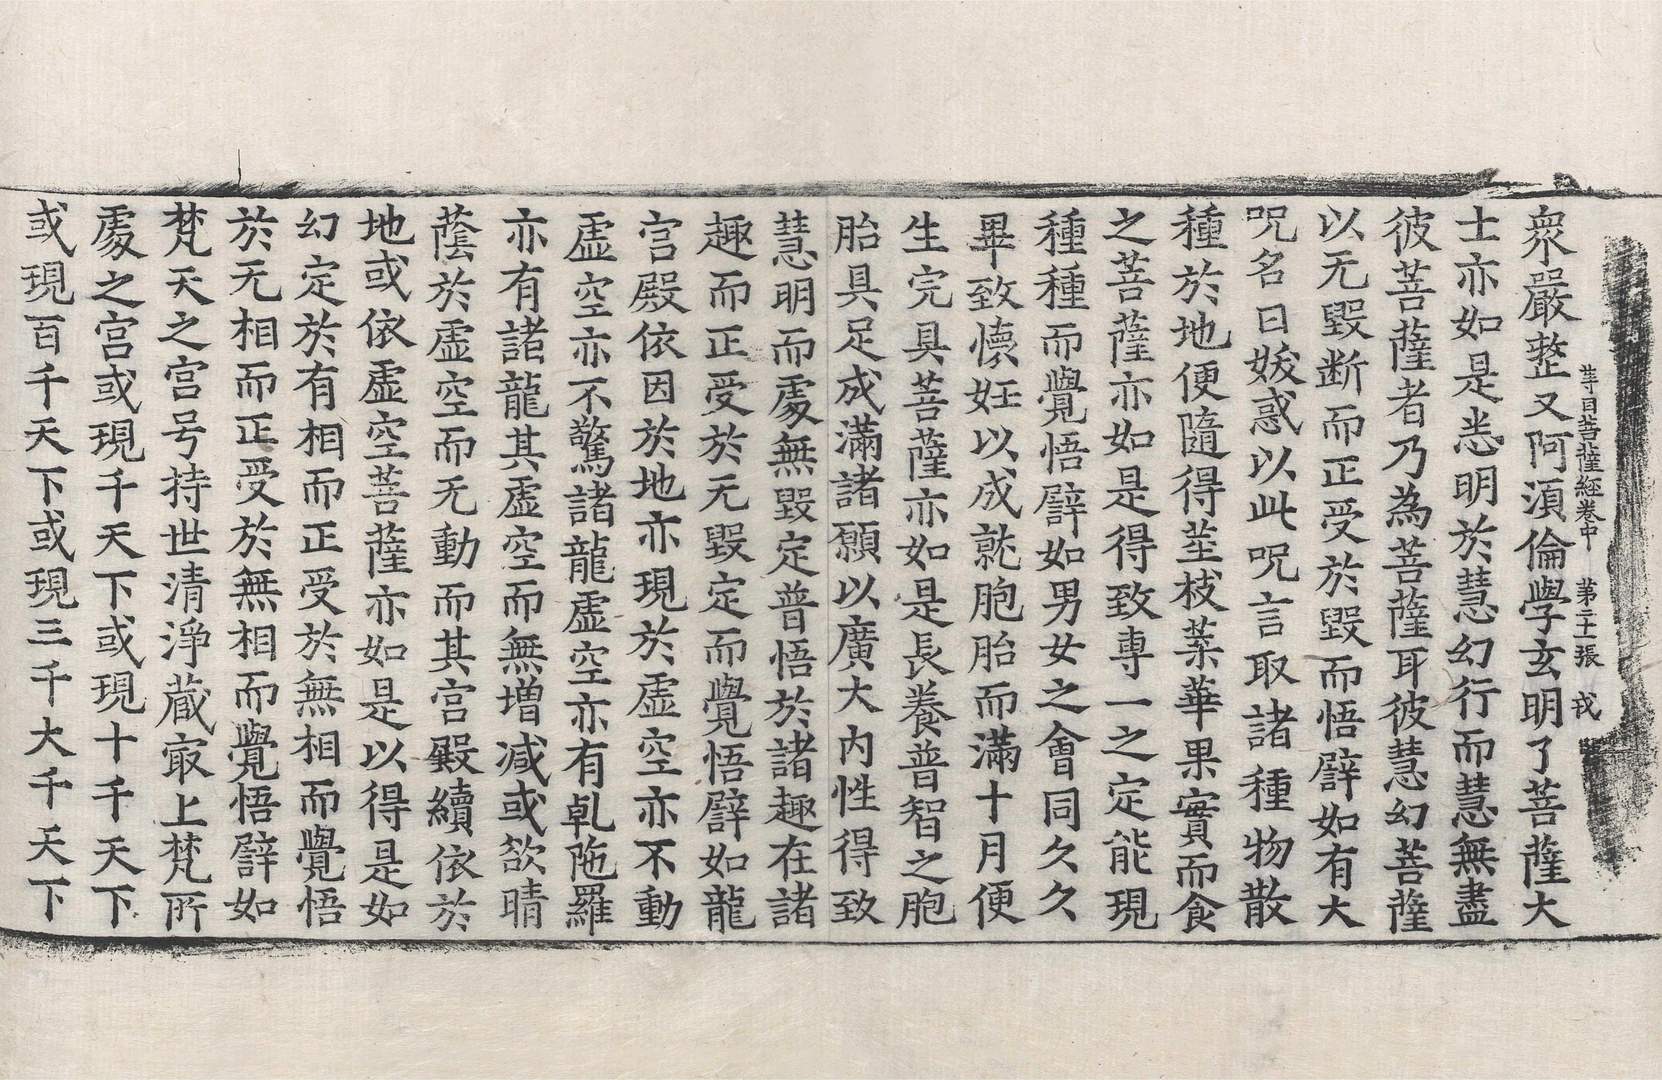 等目菩薩經卷中　第二十一張　戎
衆嚴整又阿須倫學玄明了菩薩大
士亦如是悉明於慧幻行而慧無盡
彼菩薩者乃為菩薩耳彼慧幻菩薩
以无毀断而正受於毀而悟譬如有大
呪名曰㛐惑以此呪言取諸種物散
種於地便隨得莖枝葉華果實而食
之菩薩亦如是得致專一之定能現
種種而覺悟譬如男女之會同久久
畢致懷妊以成就胞胎而滿十月便
生完具菩薩亦如是長養普智之胞
胎具足成滿諸願以廣大内性得致
慧明而處無毀定普悟於諸趣在諸
趣而正受於无毀定而覺悟譬如龍
宮殿依因於地亦現於虛空亦不動
虛空亦不驚諸龍虛空亦有乹陁羅
亦有諸龍其虛空而無增減或欲晴
蔭於虛空而无動而其宮殿續依於
地或依虛空菩薩亦如是以得是如
幻定於有相而正受於無相而覺悟
於无相而正受於無相而覺悟譬如
梵天之宮号持世清淨蔵㝡上梵所
處之宮或現千天下或現十千天下
或現百千天下或現三千大千天下